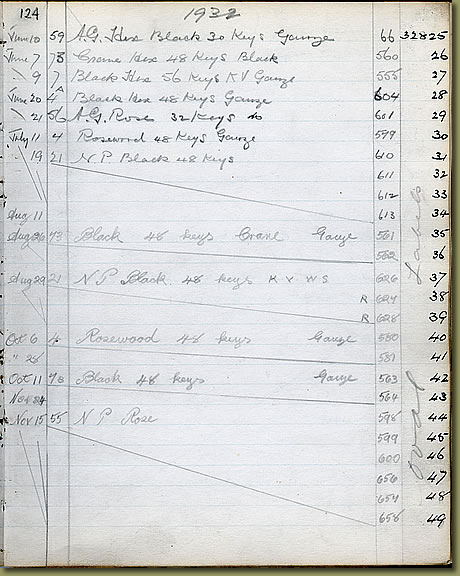 124 1932
June 10 59 A.G. Hex Black 30 Keys Gauze 66 32825
June 7 73 Crane Hex 48 Keys Black 560 26
" 9 7 Black Hex 56 Keys K V Gauze 555 27
June 20 4 Black Hex 48 Keys Gauze 604 28
" 21 56 A.G. Rose 32 Keys do 601 29
July 11 4 Rosewood 48 Keys Gauze 599 30
19 21 N P Black 48 Keys 610 31
611 32
612 33
Aug 11 613 34
Aug 26 73 Black 48 keys Crane Gauze 561 35
562 36
Aug 29 21 N P Black 48 keys K V W S 626 37
R 627 38
R 628 39
Oct 6 4 Rosewood 48 keys Gauze 580 40
" 28 581 41
Oct 11 73 Black 48 keys Gauze 563 42
564 43
Nov 15 55 N P Rose 598 44
599 45
600 46
656 47
657 48
658 49
Labels
oval